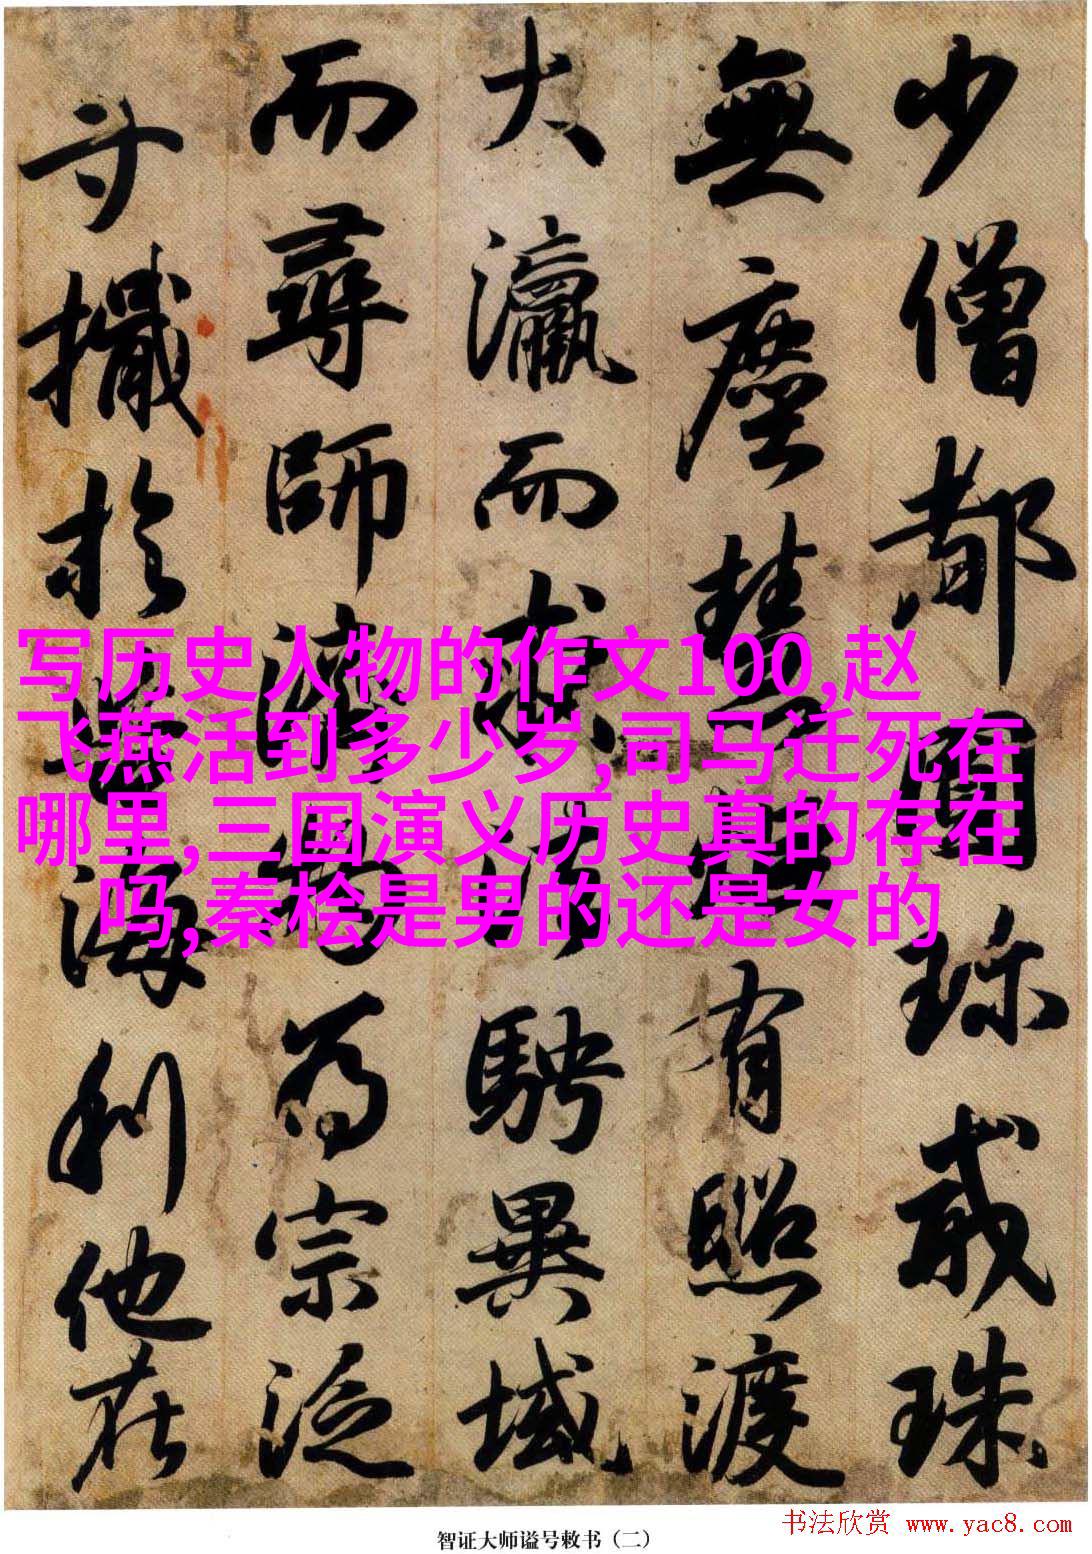 少僧都圓珎戒珠
無塵慧有照渡
大瀛而求法騁異域
而尋師濟物為宗泛
舟檝於苦海利他在
写历史人物的作文100,赵
飞燕活到多少岁,司马迁死在
哪里,三国演义历史真的存在
吗,秦桧是男的还是女的
书法欣赏 www.yac8.com
智证大师谥号敕书（二）